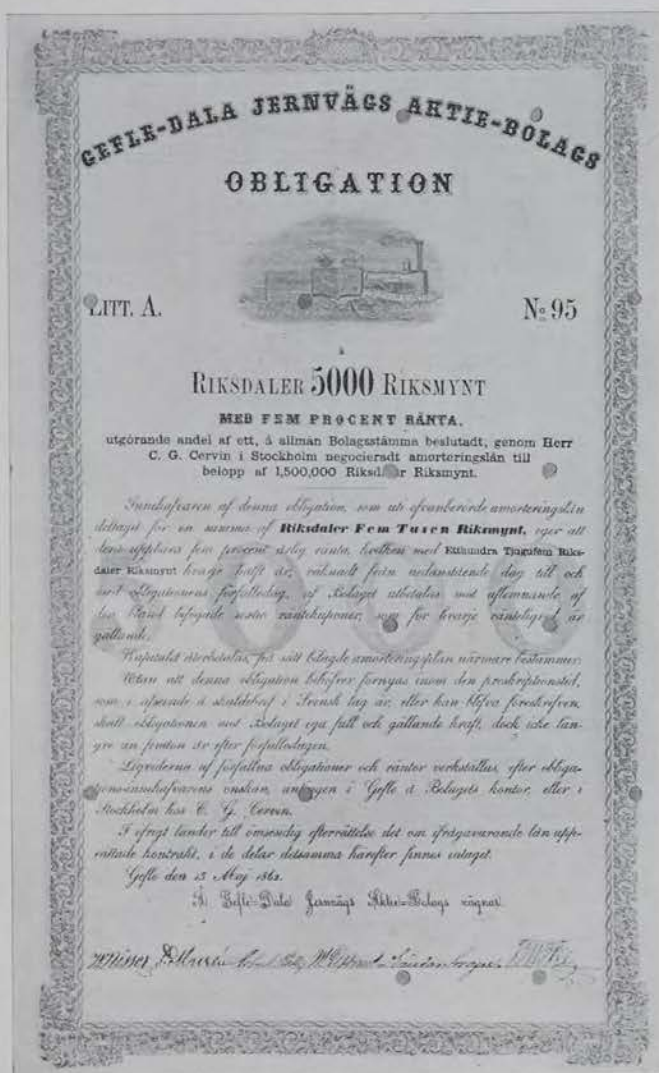 GEFLE-DALA JERNVÄGS AKTIE-BOLAGS
OBLIGATION
LITT. A.
No 95
à
RIKSDALER 5000 RIKSMYNT
MED FEM PROCENT RÄNTA,
utgörande andel af ett, å allmän Bolagsstämma beslutadt, genom Herr
C. G. Cervin i Stockholm negocieradt amorteringslån till
belopp af 1,500,000 Riksdaler Riksmynt.
Innehafvaren af denna obligation, som uti ofvanberörde amorteringslån
deltagit för en summa af Riksdaler Fem Tusen Riksmynt, eger att
derå uppbära fem procent årlig ränta, hvilken med Etthundra Tjugufem Riks-
daler Riksmynt hvarje hälft år, räknadt från nedanstående dag till och
med obligationens förfallodag, af Bolaget utbetalas mot aflemnande af
den bland bifogade sextio räntekuponer, som för hvarje ränteliqvid är
gällande.
Kapitalet återbetalas, på sätt bilagde amorteringsplan närmare bestämmer.
Utan att denna obligation behöfver förnyas inom den preskriptionstid,
som i afseende å skuldebref i Svensk lag är, eller kan blifva föreskrifven,
skall obligationen mot Bolaget ega full och gällande kraft, dock icke län-
gre än femton år efter förfallodagen.
Liqviderna af förfallna obligationer och räntor verkställas, efter obliga-
tionsinnehafvarens önskan, antingen i Gefle å Bolagets kontor, eller i
Stockholm hos C. G. Cervin.
I öfrigt länder till ömsesidig efterrättelse det om ifrågavarande lån upp-
rättade kontrakt, i de delar detsamma härefter finnes intaget.
Gefle den 15 Maj 1862.
Å Gefle-Dala Jernvägs Aktie-Bolags vägnar
5000